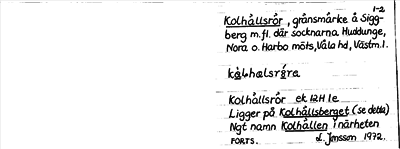 1-2
Kolhållsrör, gränsmärke å Sigg-
berg m.fl. där socknarna Huddunge,
Nora o. Harbo möts, Våla hd, Västm.l.
Kolhållsrör ek 12H 1e
Ligger på Kolhållsberget (se detta)
Ngt namn Kolhållen i närheten
FORTS. L. Jonsson 1972.